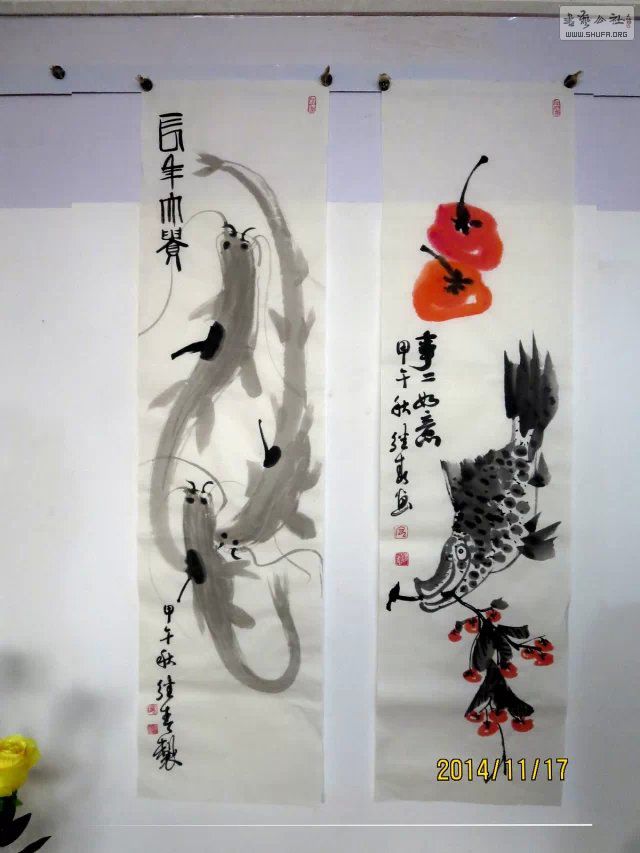 書藝公社
WWW.SHUFA.ORG
長年大貴
甲午秋继春製
事二如意
甲午秋继春画
2014/11/17